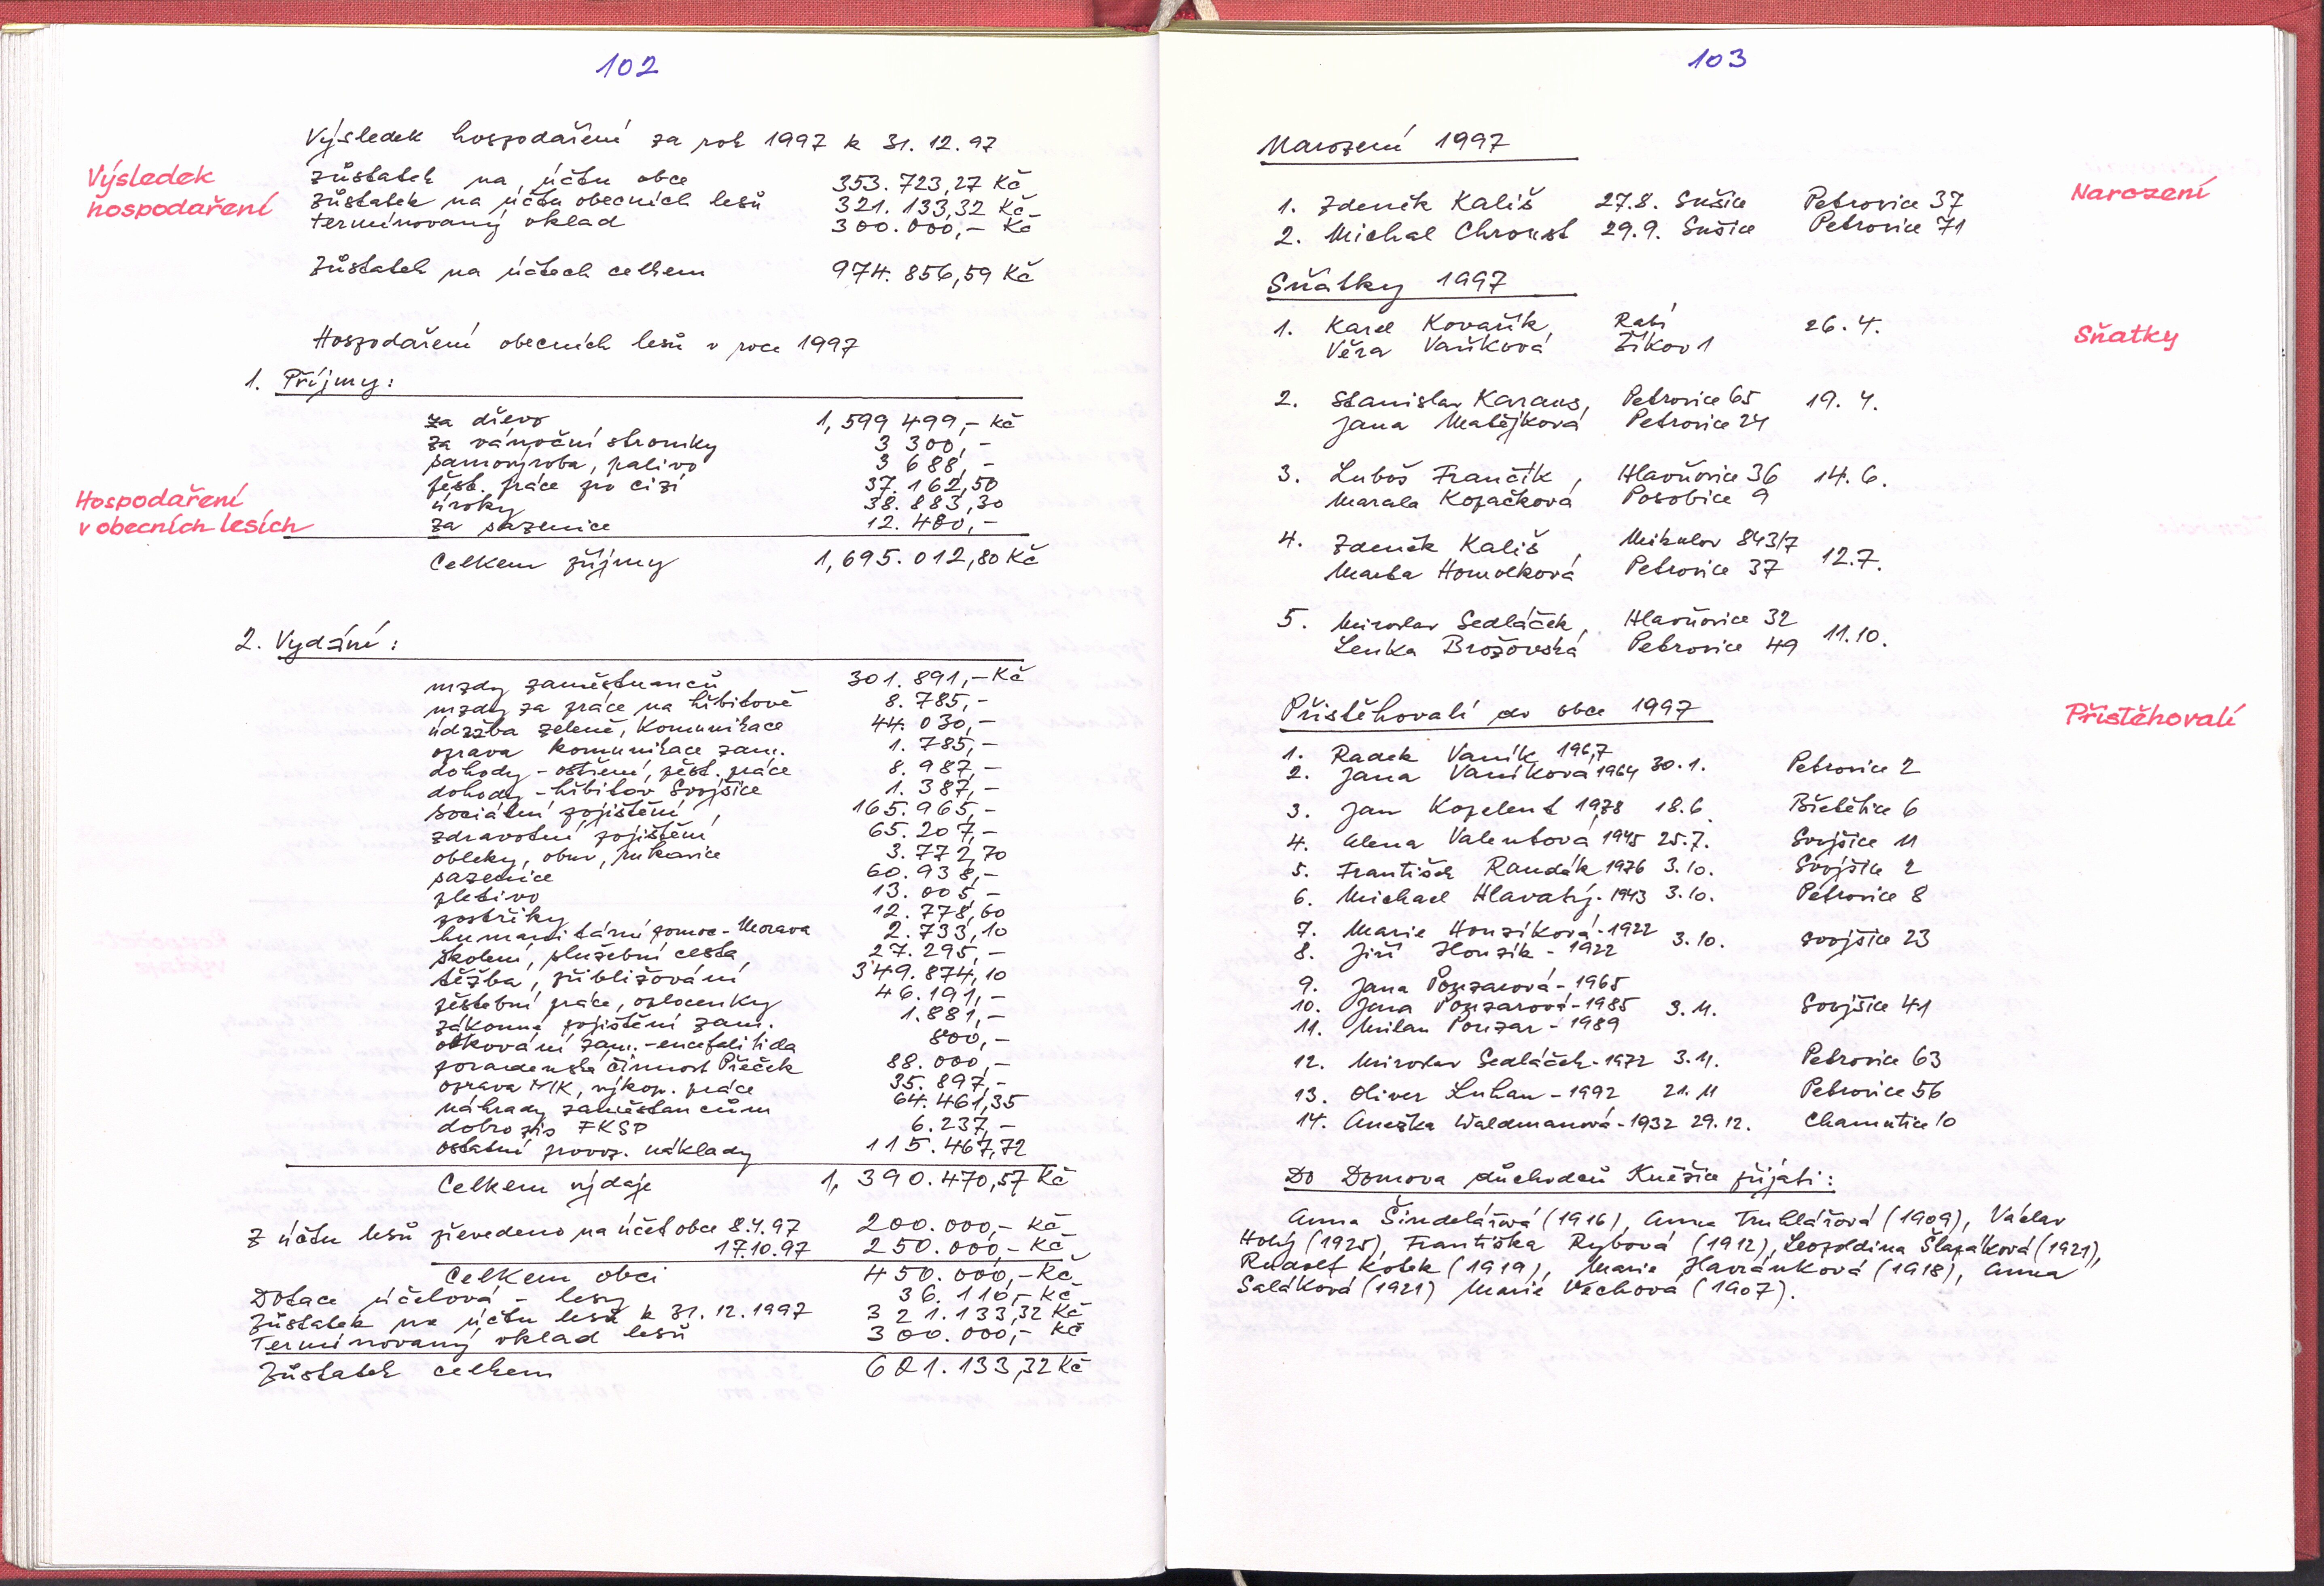 102
Výsledek hospodaření za rok 1997 k 31.12.97
Výsledek
hospodaření
zůstatek na účtu obce 353.723,27 Kč
zůstatek na účtu obecních lesů 321.133,32 Kč
termínovaný vklad 300.000,- Kč
Zůstatek na účtech celkem 974.856,59 Kč
Hospodaření obecních lesů v roce 1997
1. Příjmy:
za dřevo 1,599 499,- Kč
za vánoční stromky 3 300,-
samovýroba, palivo 3 688,-
pěst. práce pro cizí 37.162,50
úroky 38.883,30
za sazenice 12.480,-
Hospodaření
v obecních lesích
Celkem příjmy 1,695.012,80 Kč
2. Vydání:
mzdy zaměstnanců 301.891,- Kč
mzdy za práce na hřbitově 8.785,-
údržba zeleně, komunikace 44.030,-
oprava komunikace zam. 1.785,-
dohody - ostření, pěst. práce 8.987,-
dohody - hřbitov Svojšice 1.387,-
sociální pojištění, 165.965,-
zdravotní pojištění 65.207,-
obleky, obuv, rukavice 3.772,70
sazenice 60.938,-
pletivo 13.005,-
postřiky 12.778,60
humanitární pomoc - Morava 2.733,10
školení, služební cesta, 27.295,-
těžba, přibližování 349.874,10
pěstební práce, oplocenky 46.191,-
zákonné pojištění zam. 1.881,-
očkování zam. - encefalitida 800,-
poradenská činnost Přeček 88.000,-
oprava MK, výkop. práce 35.897,-
náhrady zaměstancům 64.461,35
dobropis FKSP 6.237,-
ostatní provoz. náklady 115.467,72
Celkem výdaje 1,390.470,57 Kč
Z účtu lesů převedeno na účet obce 8.4.97 200.000,- Kč
17.10.97 250.000,- Kč
Celkem obci 450.000,- Kč
Dotace účelová - lesy 36.110,- Kč
Zůstatek na účtu lesů k 31.12.1997 321.133,32 Kč
Termínovaný vklad lesů 300.000,- Kč
Zůstatek celkem 621.133,32 Kč
103
Narození 1997
Narození
1. Zdeněk Kališ 27.8. Sušice Petrovice 37
2. Michal Chroust 29.9. Sušice Petrovice 71
Sňatky 1997
Sňatky
1. Karel Kovařík, Rabí 26.4.
Věra Vaňková Žíkov 1
2. Stanislav Karaus, Petrovice 65 19.4.
Jana Matějková Petrovice 24
3. Luboš Frančík, Hlavňovice 36 14.6.
Marala Kopačková Posobice 9
4. Zdeněk Kališ, Mikulov 843/7
Marta Homolková Petrovice 37 12.7.
5. Miroslav Sedláček, Hlavňovice 32
Lenka Brožovská Petrovice 49 11.10.
Přistěhovalí do obce 1997
Přistěhovalí
1. Radek Vaník 1967
2. Jana Vaníková 1964 30.1. Petrovice 2
3. Jan Kopelent 1978 18.6. Břetětice 6
4. Alena Valentová 1945 25.7. Svojšice 11
5. František Randák 1976 3.10. Svojšice 2
6. Michael Hlavatý - 1943 3.10. Petrovice 8
7. Marie Honzíková - 1922
8. Jiří Honzík - 1922 3.10. Svojšice 23
9. Jana Ponzarová - 1965
10. Jana Ponzarová - 1985 3.11. Svojšice 41
11. Milan Ponzar - 1989
12. Miroslav Sedláček - 1972 3.11. Petrovice 63
13. Oliver Luhan - 1992 21.11 Petrovice 56
14. Anežka Waldmanová - 1932 29.12. Chamutice 10
Do Domova důchodců Kněžice přijati:
Anna Šindelářová (1916), Anna Truhlářová (1909), Václav
Holý (1925), Františka Rybová (1912), Leopoldina Šlapáková (1921),
Rudolf Kotek (1919), Marie Havránková (1918), Anna
Saláková (1921) Marie Vechová (1907).